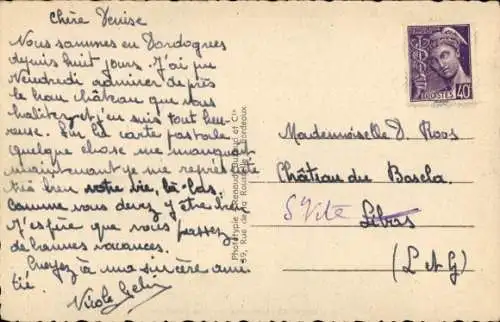 Chère Denise
Nous sommes en Dordogne
depuis huit jours. J'ai pu
Vendredi admirer de près
le beau château que vous
habitez et j'en suis tout heu-
reuse. Sur la carte postale
quelque chose me manquait
maintenant je me représente
très bien votre vie, là-bas.
Comme vous devez y être bien
J'espère que vous passez
de bonnes vacances.
Croyez à ma sincère ami
tié.
Nicole
Phototypie
59, Rue de la Rousselle Bordeaux
POSTES 40c
Mademoiselle D Roos
Château du Boscla
Ste Vite Libos
(L et G)